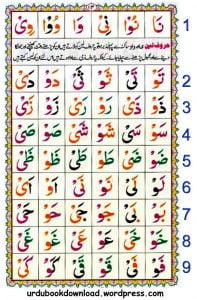 نَا نُوْا نِىْ وَا وُوْا وِىْ 1
حروف لین
تَوْ تَىْ ثَوْ ثَىْ دَوْ دَىْ 2
ذَوْ ذَىْ رَوْ رَىْ زَوْ زَىْ 3
سَوْ سَىْ شَوْ شَىْ صَوْ صَىْ 4
ضَوْ ضَىْ طَوْ طَىْ ظَوْ ظَىْ 5
لَوْ لَىْ نَوْ نَىْ اَوْ اَىْ 6
بَوْ بَىْ جَوْ جَىْ حَوْ حَىْ 7
خَوْ خَىْ عَوْ عَىْ غَوْ غَىْ 8
فَوْ فَىْ قَوْ قَىْ كَوْ كَىْ 9
urdubookdownload.wordpress.com